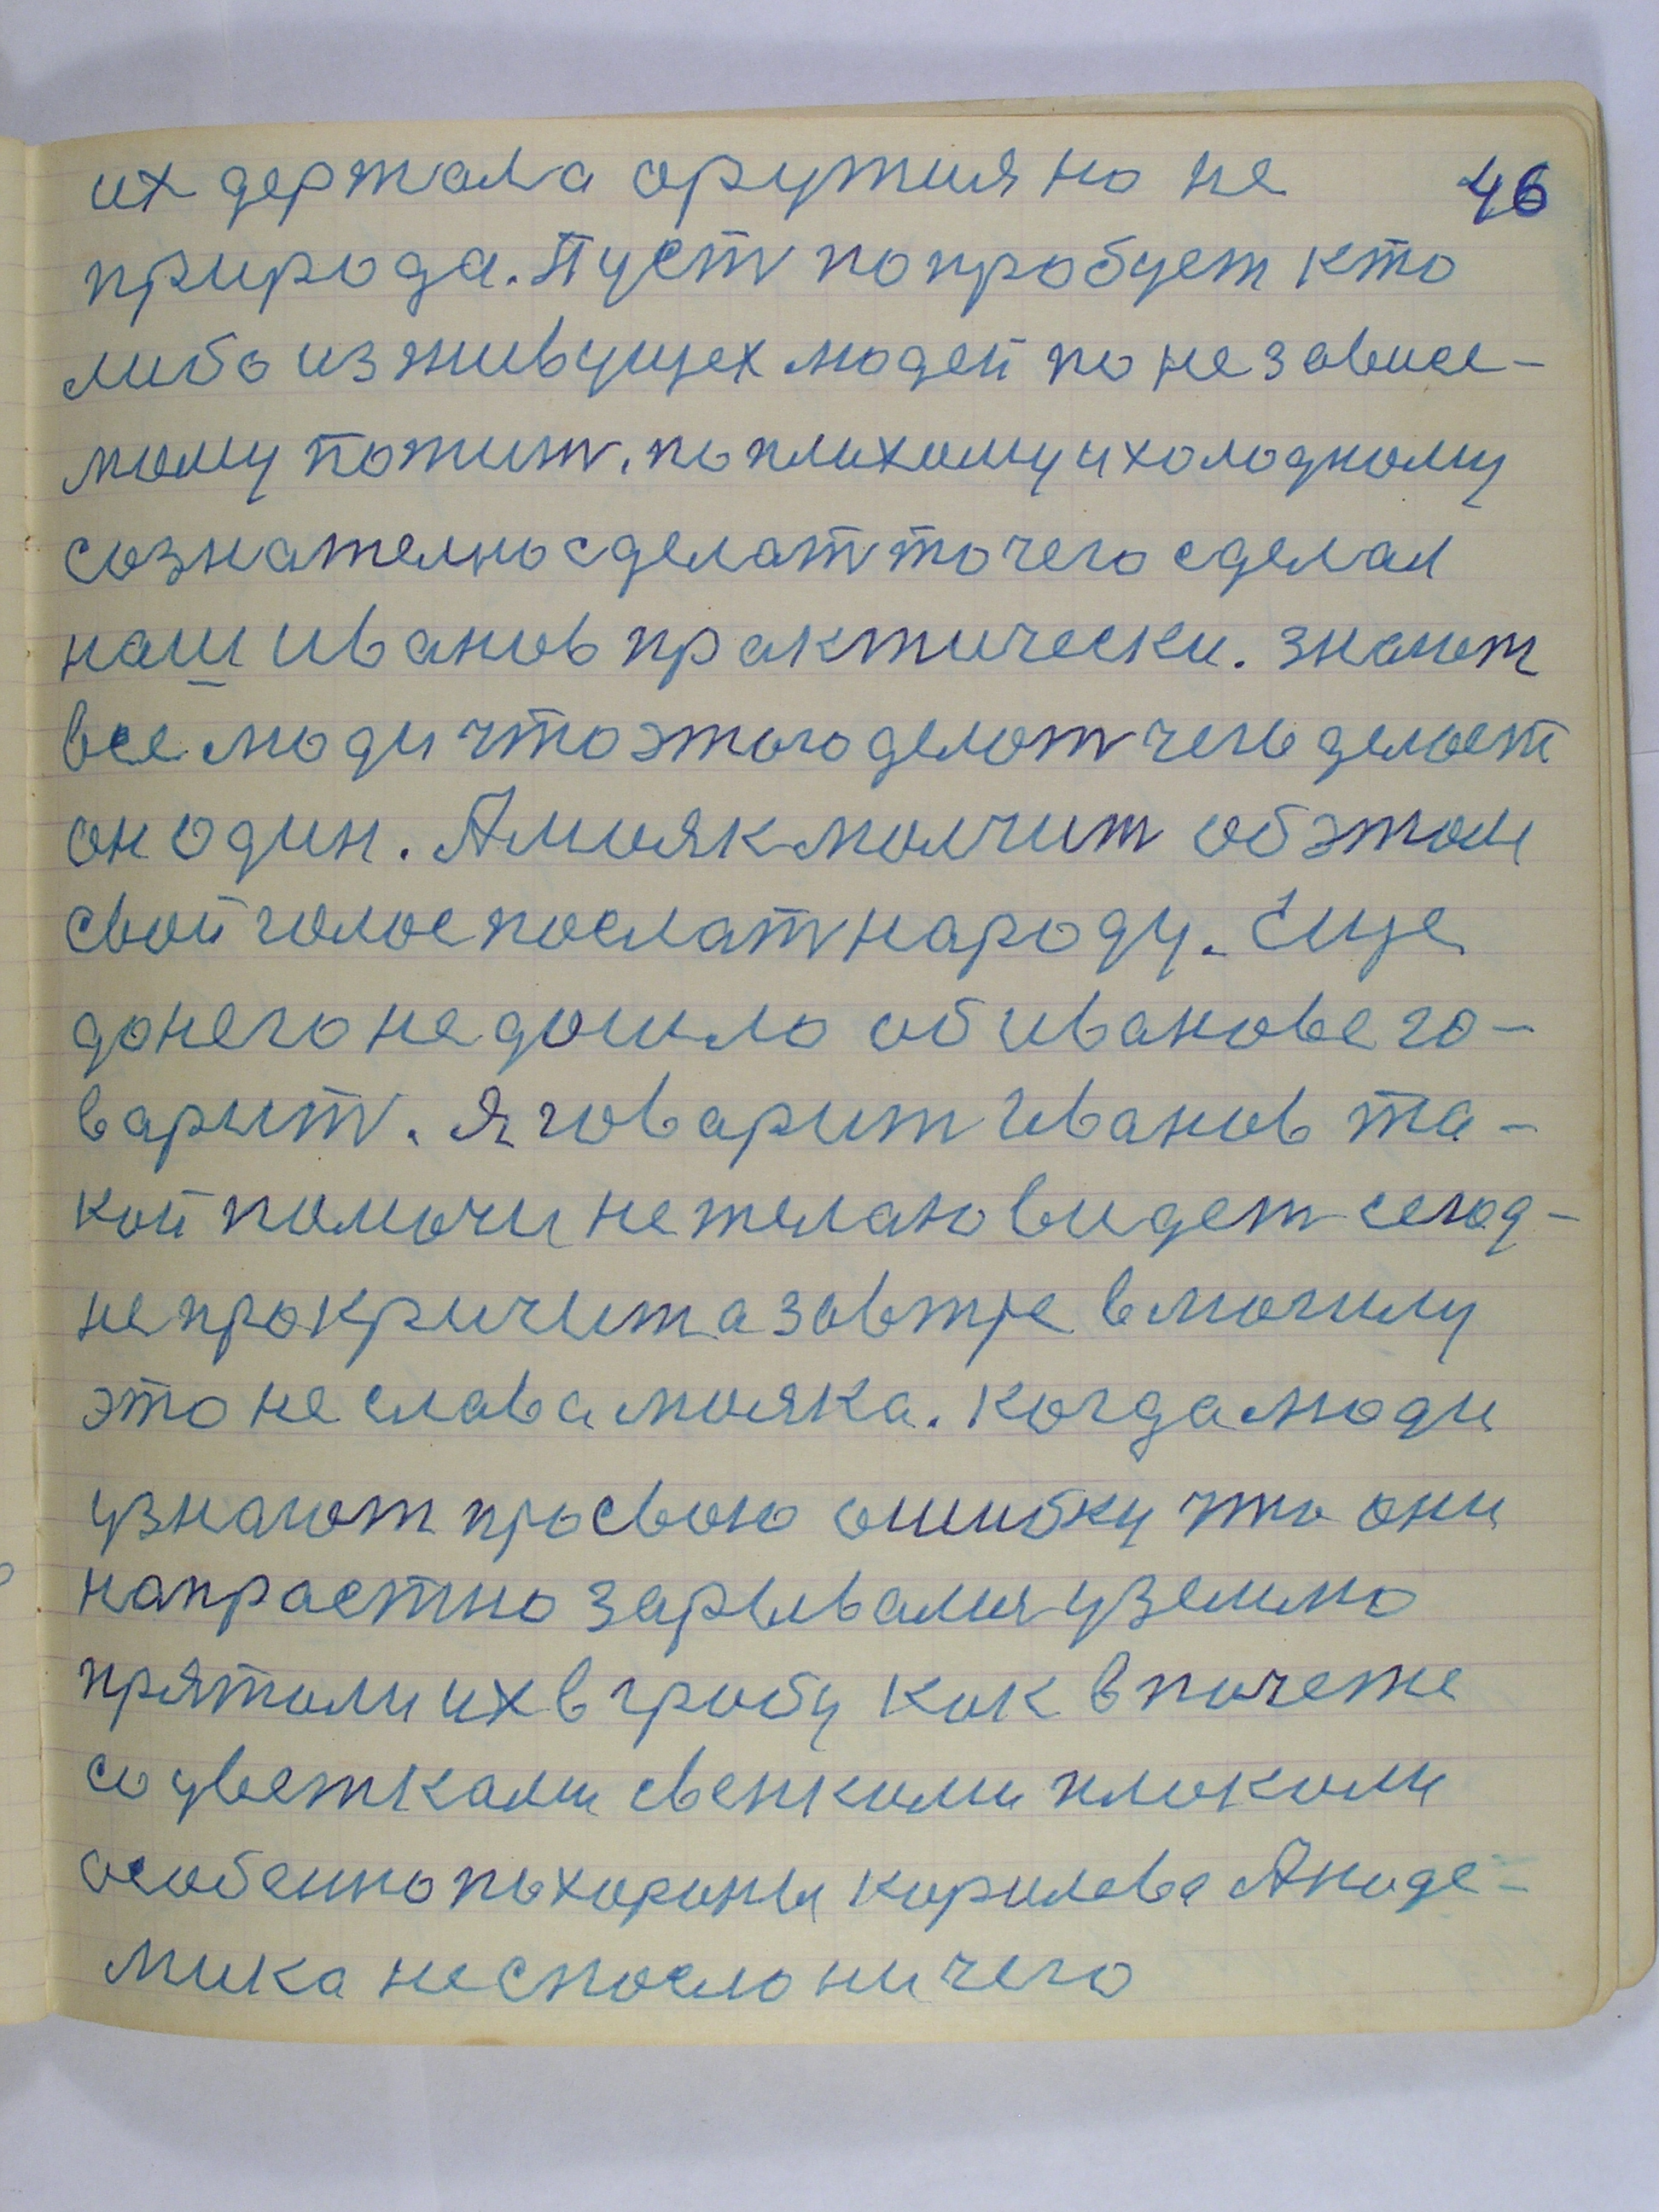 их держала оружия но не 46
природа. Пусть попробует кто
либо из живущех людей по не зависе-
мому пожить. по плихому и холодному
сознателно сделать то чего сделал
наш иванов практически. знают
все люди что этого делоть чего делоет
он один. А мояк молчит об этом
свой голос послать народу. Еще
до него не дошло об иванове го-
варить. я говарит Иванов та-
кой помочи не желаю видеть сегод-
не прокричит а завтре в могилу
это не слава мояка. когда люди
узнают про свою ошибку что они
напрастно зарывалия у землю
прятоли их в гробу как в почеже
со цветками свенками плокоми
особенно похороны королева Акаде-
мика не споело ничего